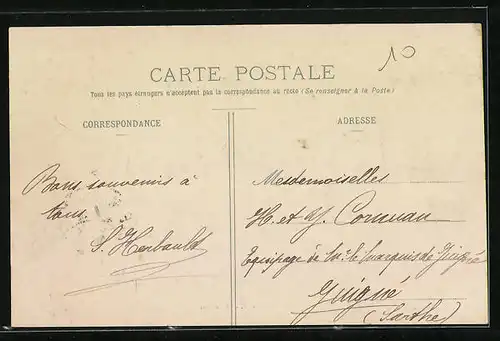 10
CARTE POSTALE
Tous les pays étrangers n'acceptent pas la correspondance au recto (Se renseigner à la Poste)
CORRESPONDANCE
ADRESSE
Bons souvenirs à
tous
S. Herbault
Mesdemoiselles
H. et M. Cormuau
Equipage de Mr le Marquis de Juigné
Juigné
(Sarthe)